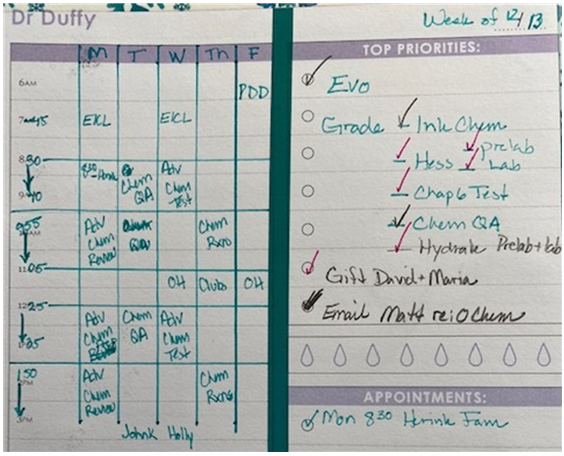 Dr Duffy
M T W Th F
6AM
PDD
EICL EICL
8:30
8:30
Chem QA
Adv Chem Test
9:55
Adv Chem Review
Chem Rxns
11:05
OH Clubs OH
12:25
Adv Chem
Chem QA
Adv Chem Test
1:25
1:50
Adv Chem Review
Chem Rxns
3PM
Holly
Week of 12/13
TOP PRIORITIES:
Evo
Grade Ink Chem
Hess prelab
Lab
Chap 6 Test
Chem QA
Hydrate Prelab + lab
Gift David + Maria
Email Matt re: OChem
APPOINTMENTS:
Mon 8:30 Fam